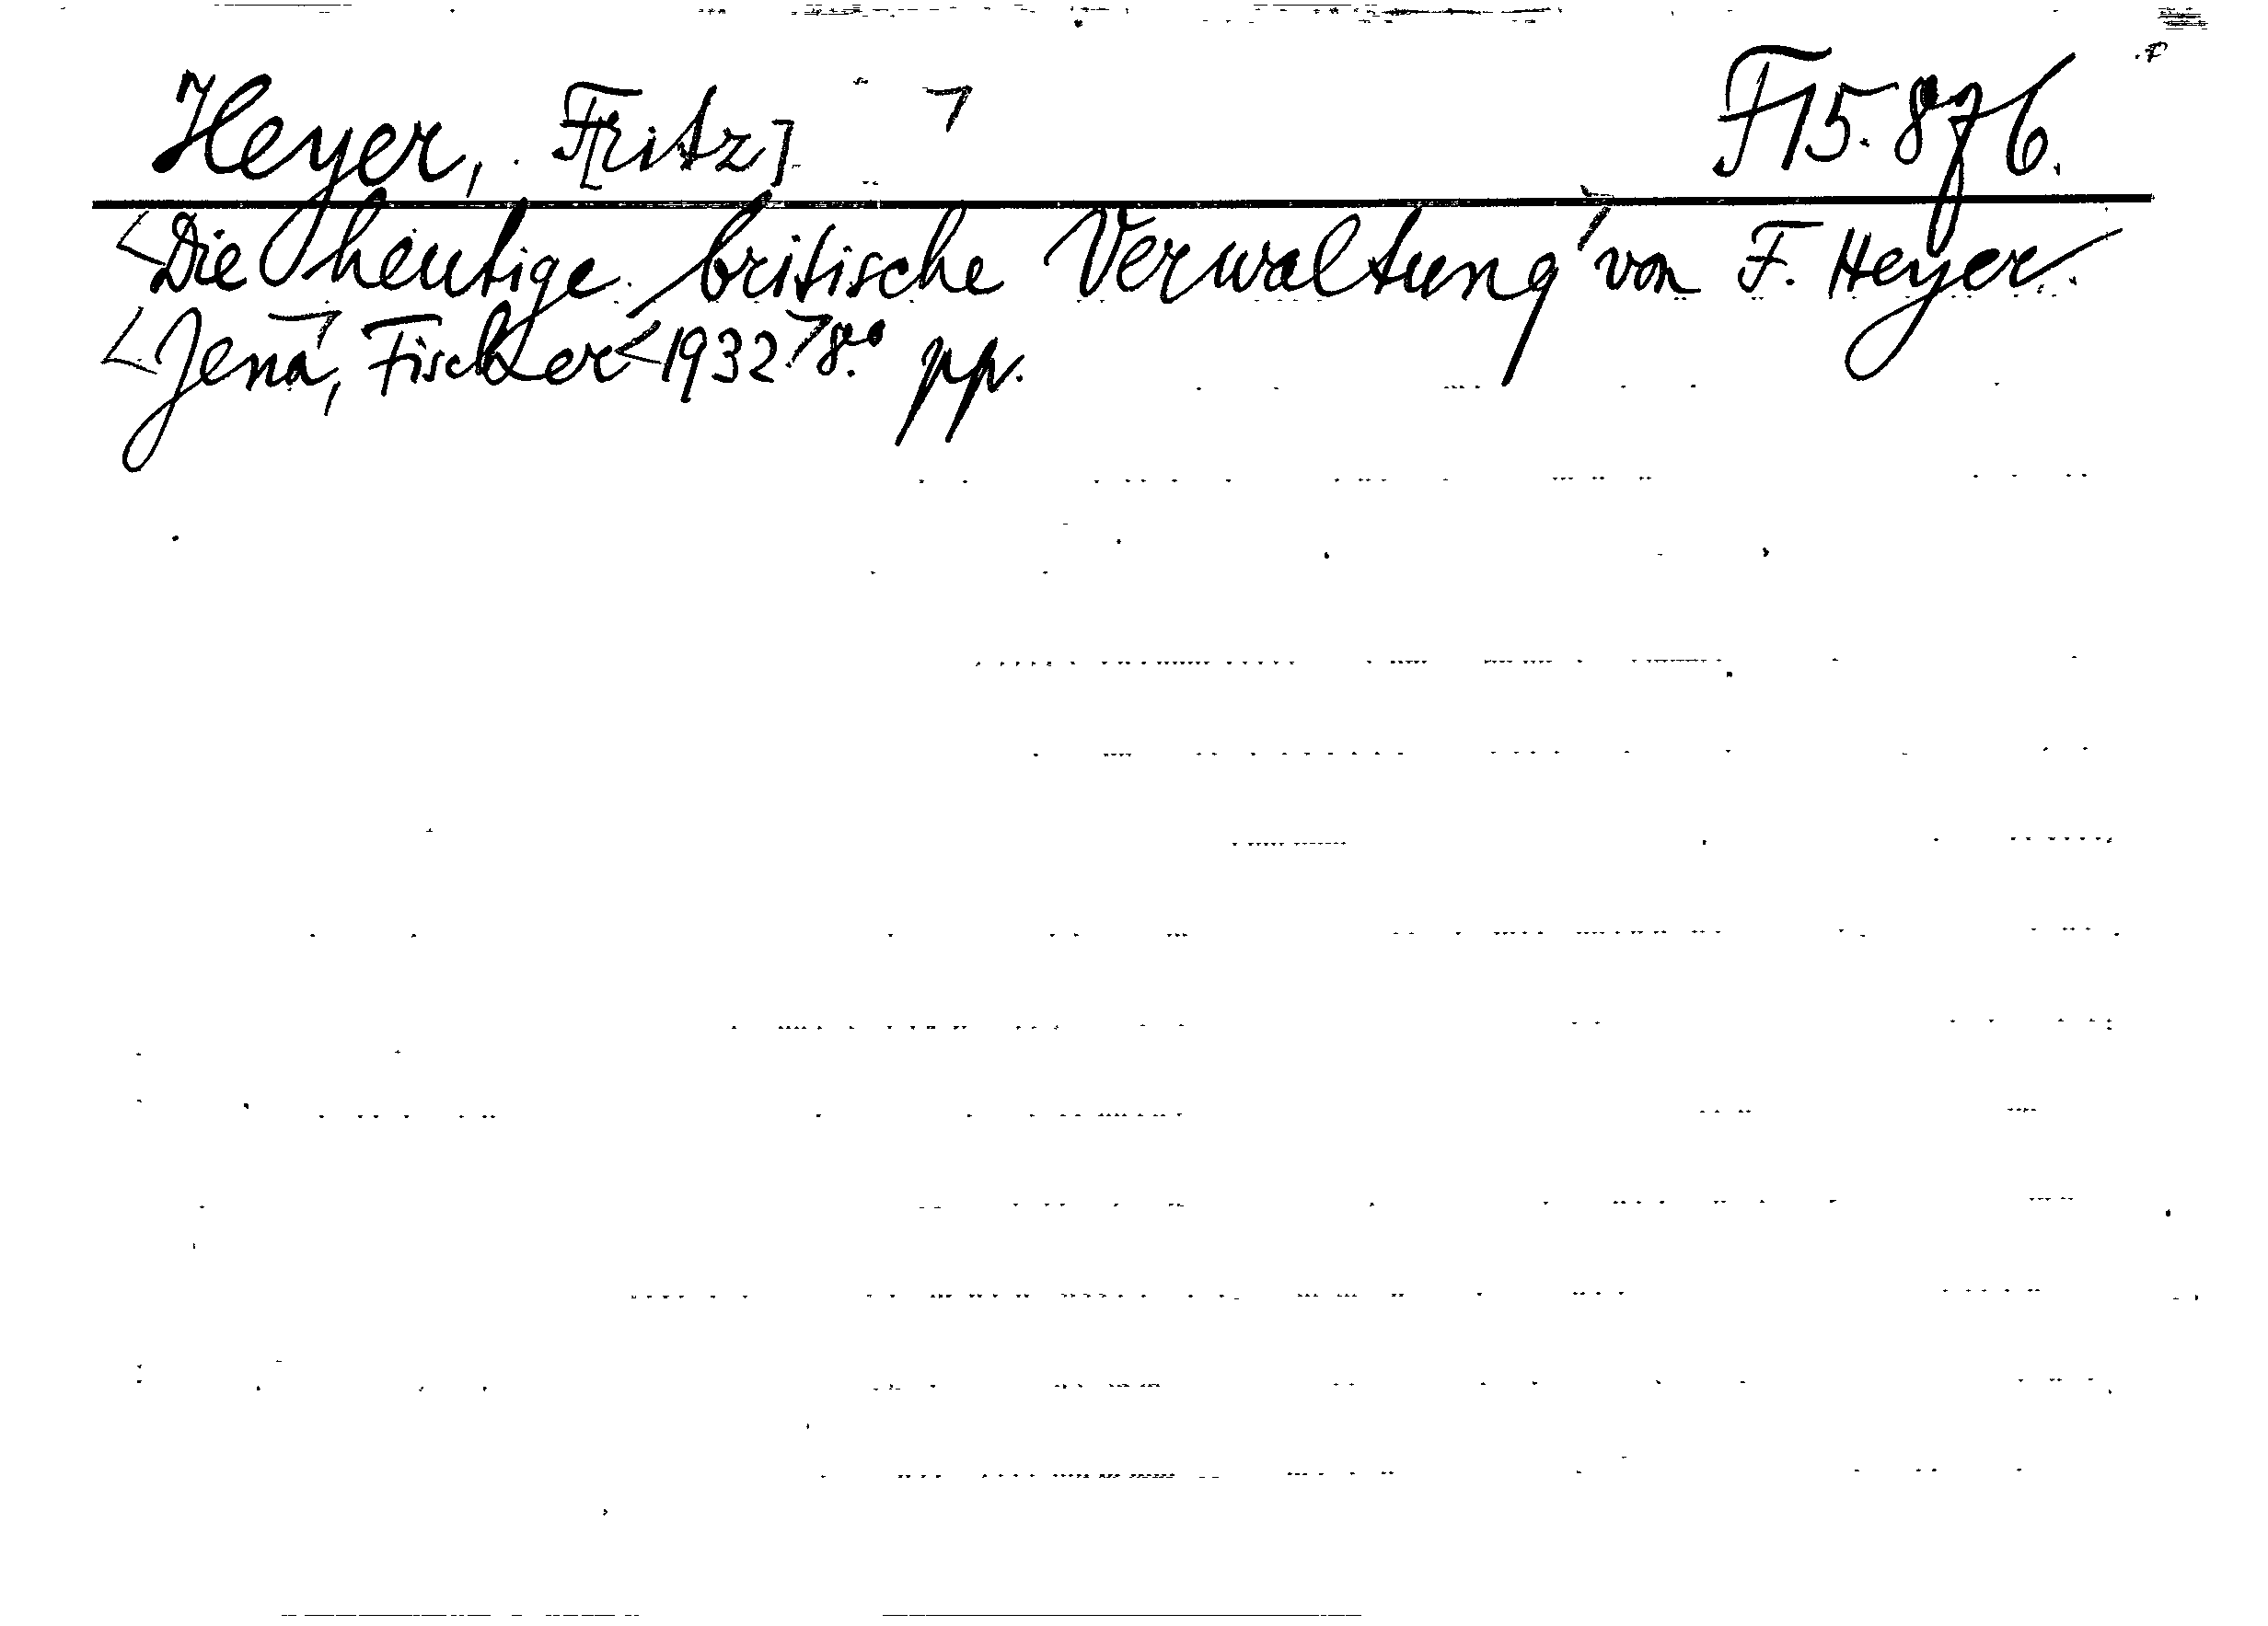 Heyer, F[ritz] F15.876.
<Die heutige britische Verwaltung von F. Heyer.
<Jena, Fischer <1932> 8º. pp.